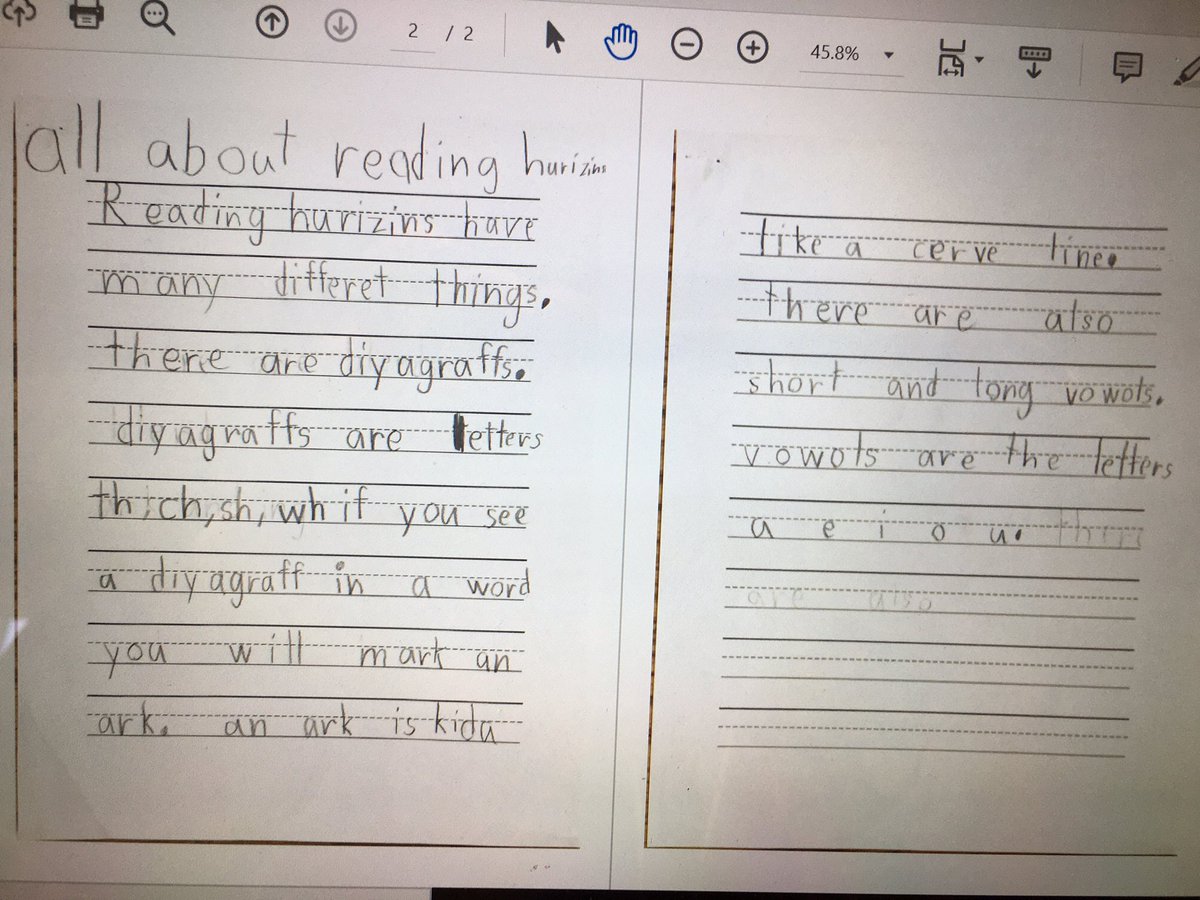 2 / 2
45.8%
all about reading hurizins
Reading hurizins have
many differet things.
there are diyagraffs.
diyagraffs are letters
th,ch,sh,wh if you see
a diyagraff in a word
you will mark an
ark. an ark is kida
like a cerve line.
there are also
short and long vowols.
vowols are the letters
a e i o u.
are also